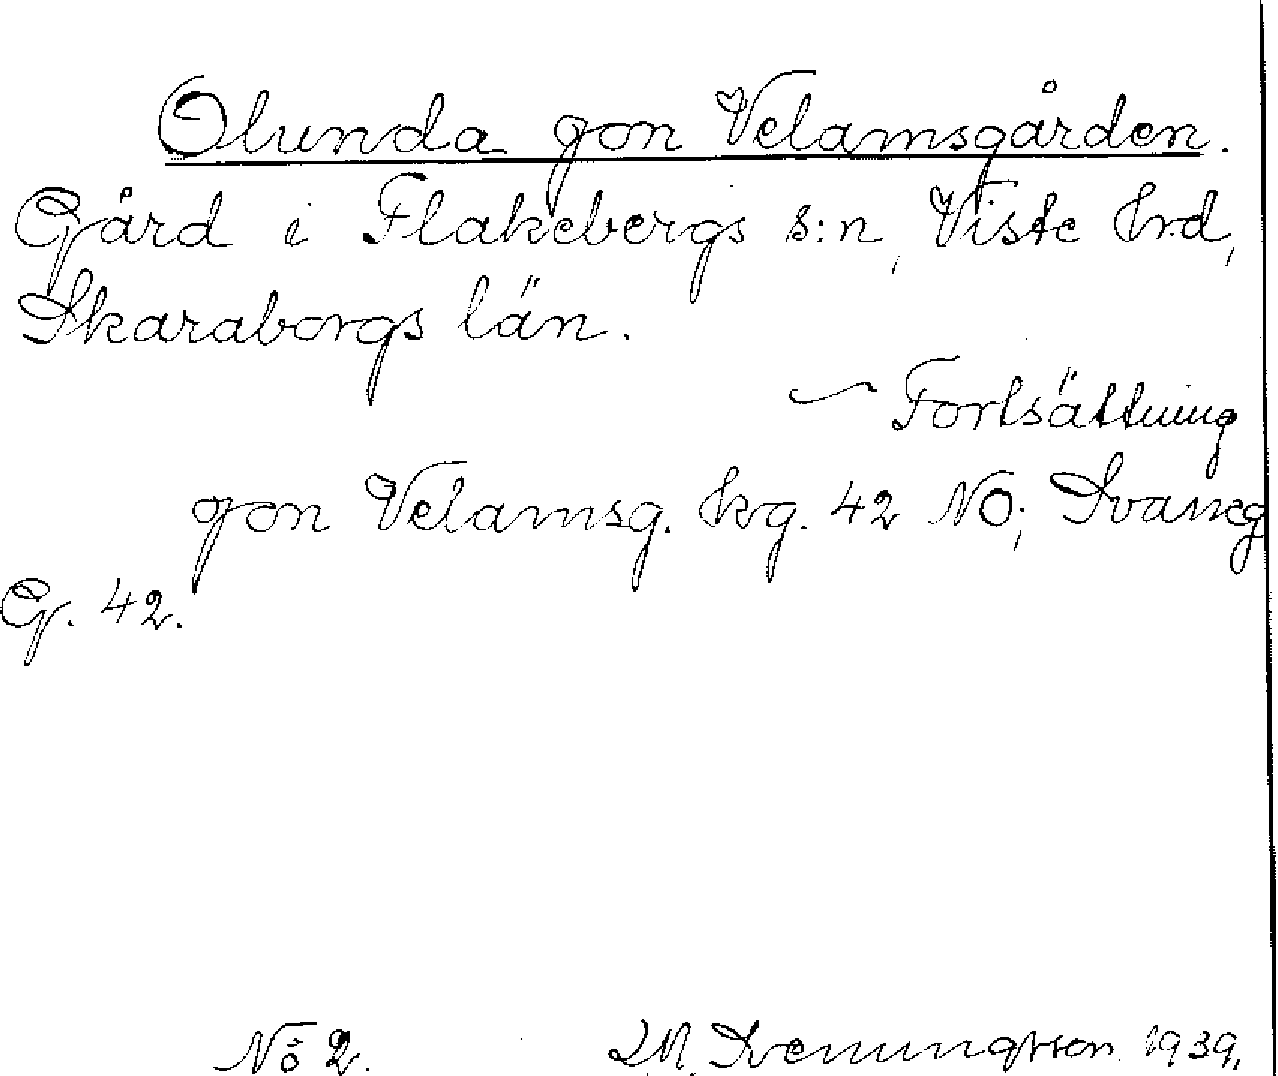 Olunda gon Velamsgården.
Gård i Flakebergs s:n, Viste hrd,
Skaraborgs län.
~ Fortsättning
gon Velamsg. kg. 42 NO;
G. 42.
Nö 2. 1939.